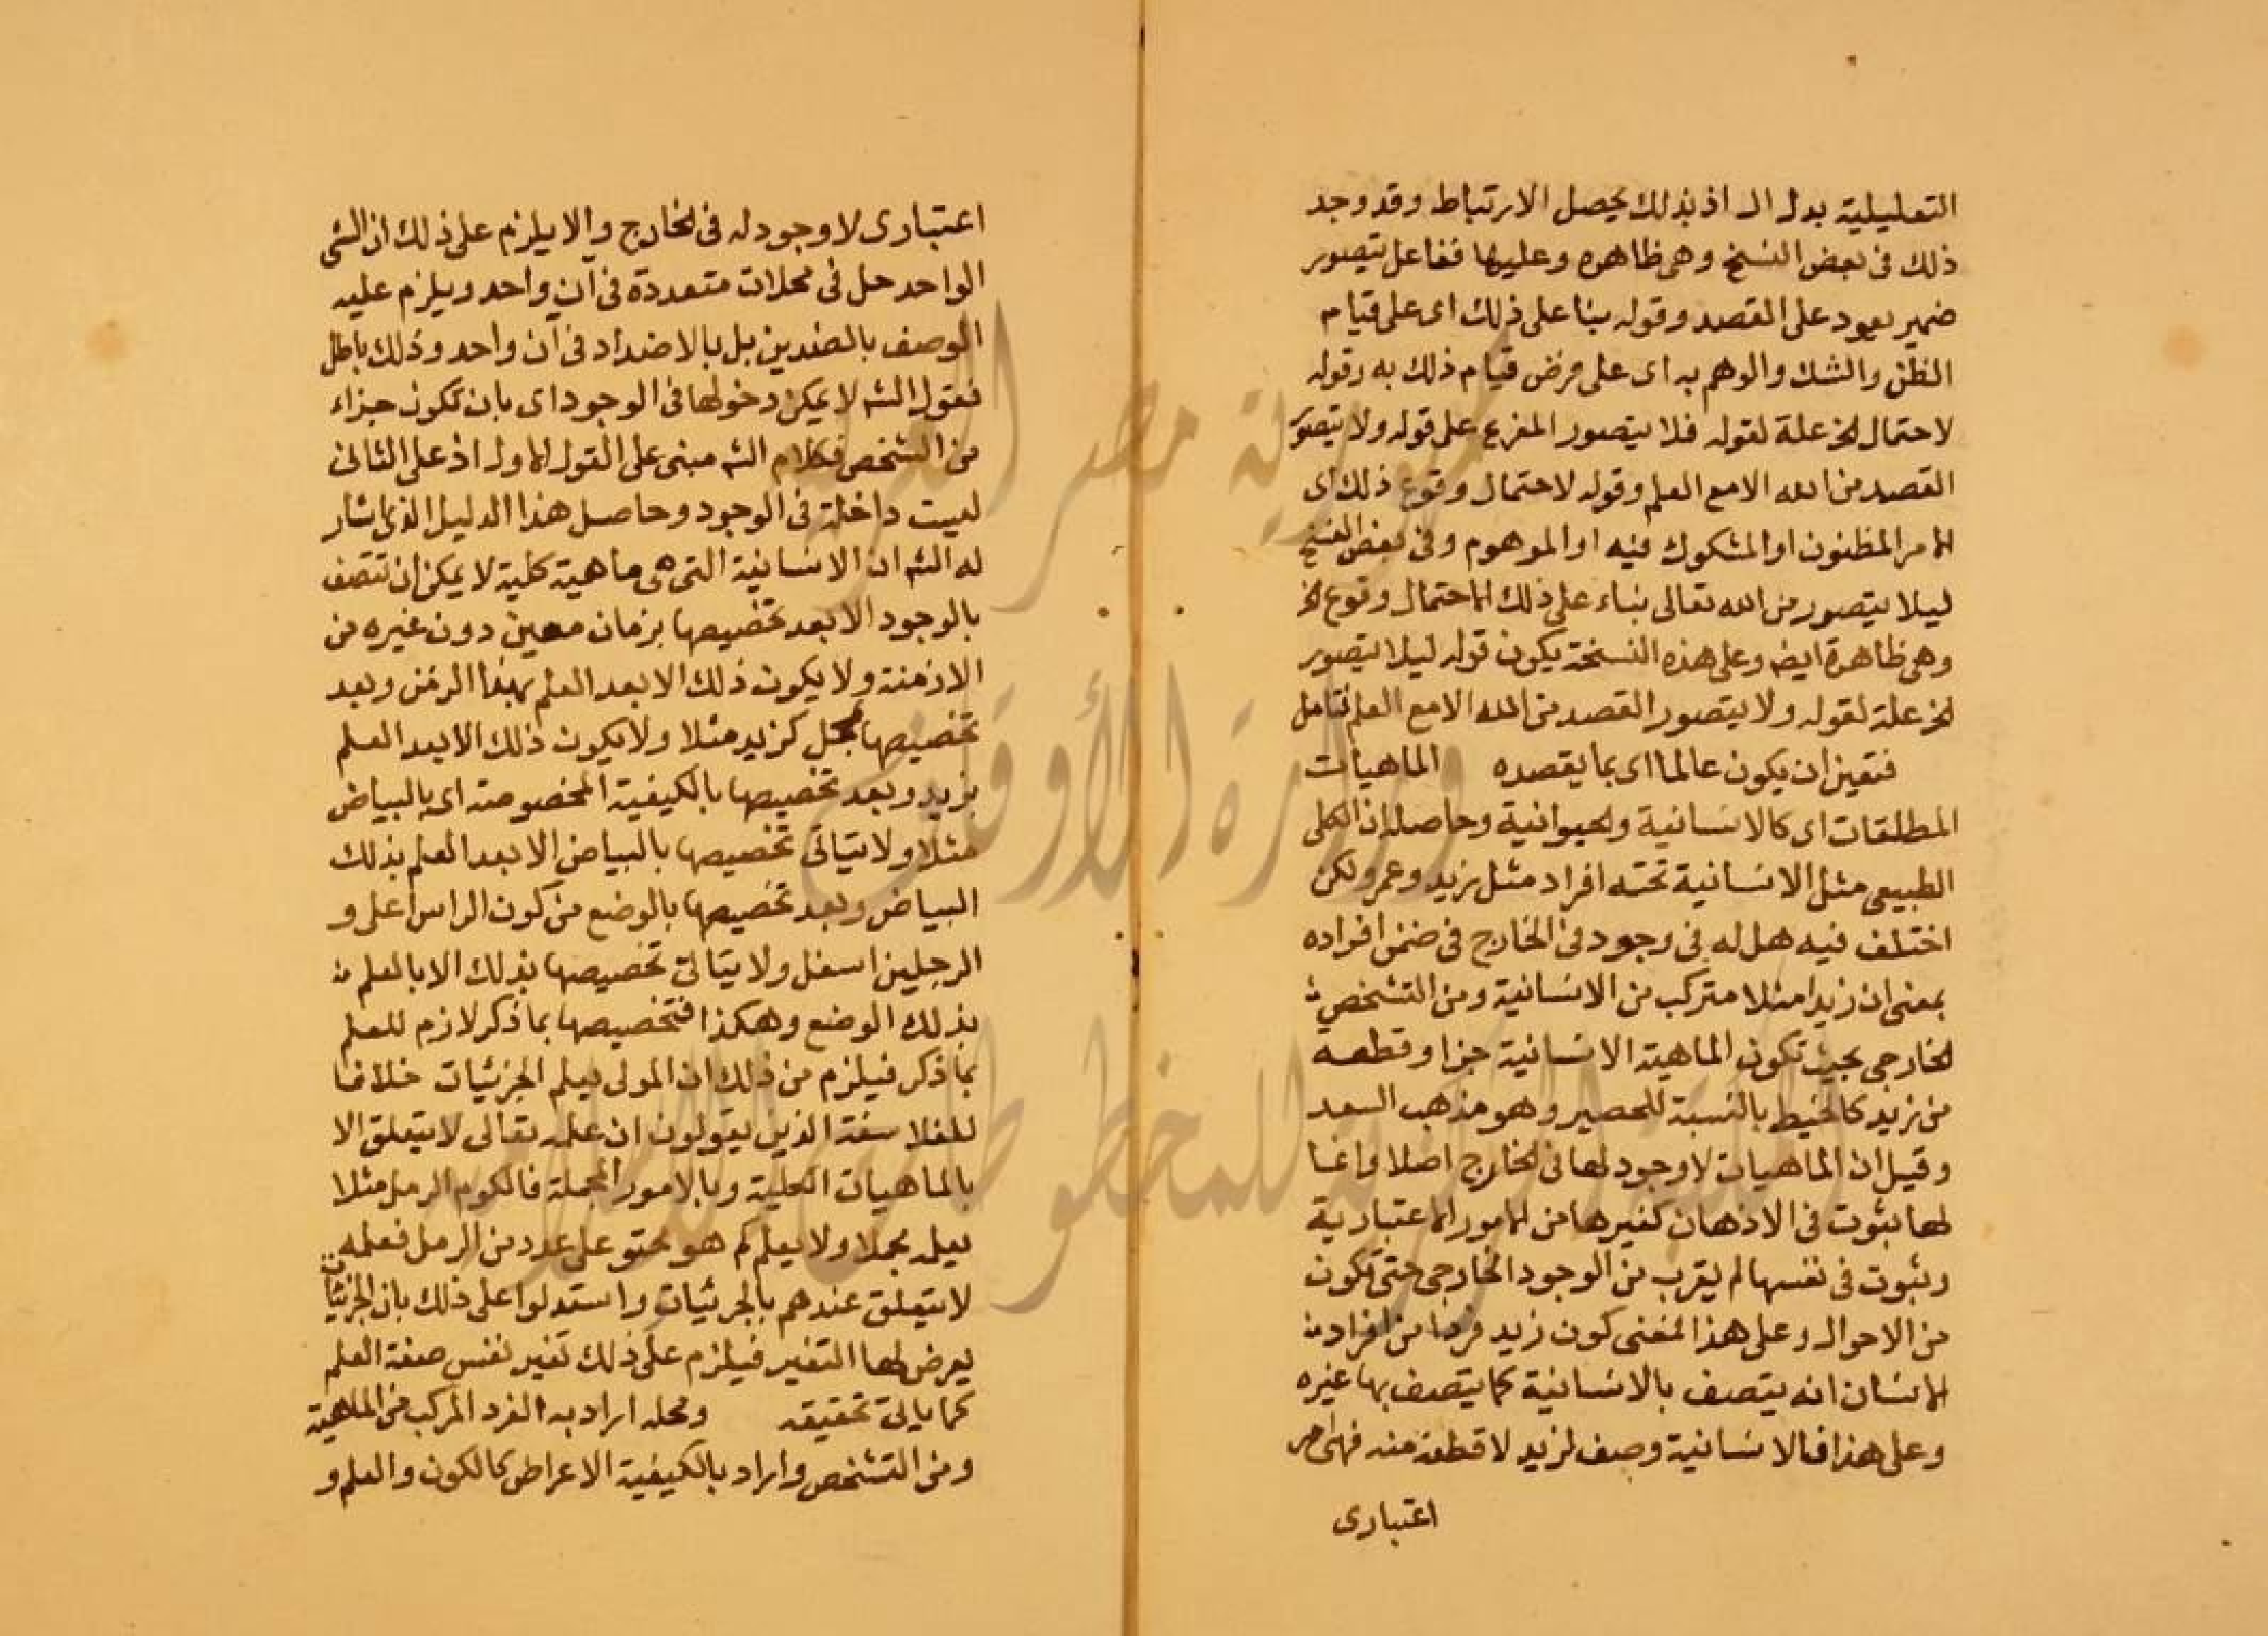 التعليلية بدل ال اذ بذلك يحصل الارتباط وقد وجد
ذلك فى بعض النسخ وهى ظاهره وعليها ففاعل يتصور
ضمير يعود على القصد وقوله بنا على ذلك اى على قيام
الظن والشك والوهم به اى على فرض قيام ذلك به وقوله
لاحتمال الخ علة لقوله فلا يتصور المفرع على قوله ولا يتصور
القصد من الله الا مع العلم وقوله لاحتمال وقوع ذلك اى
الامر المظنون او المشكوك فيه او الموهوم وفى بعض النسخ
ليلا يتصور من الله تعالى بناء على ذلك الاحتمال وقوع الخ
وهى ظاهرة ايضا وعلى هذه النسخة يكون قوله ليلا يتصور
الخ علة لقوله ولا يتصور القصد من الله الا مع العلم فتامل
فتعين ان يكون عالما اى بما يقصده الماهيات
المطلقات اى كالانسانية والحيوانية وحاصله ان الكلى
الطبيعى مثل الانسانية تحته افراد مثل زيد وعمر ولكن
اختلف فيه هل له فى وجود فى الخارج فى ضمن افراده
بمعنى ان زيدا مثلا متركب من الانسانية ومن التشخص
الخارجى بحيث تكون الماهية الانسانية جزا وقطعه
من زيد كالخيط بالنسبة للحصير وهو مذهب السعد
وقيل ان الماهيات لا وجود لها فى الخارج اصلا وانما
لها ثبوت فى الاذهان كغيرها من الامور الاعتبارية
وثبوت فى نفسها لم يقرب من الوجود الخارجى حتى تكون
من الاحوال وعلى هذا المعنى كون زيد فردا من افراد
الانسان انه يتصف بالانسانية كما يتصف بها غيره
وعلى هذا فالانسانية وصف لزيد لا قطعة منه فهى امر
اعتبارى
اعتبارى لا وجود له فى الخارج والا يلزم على ذلك ان الشى
الواحد حل فى محلات متعددة فى آن واحد ويلزم عليه
الوصف بالضدين بل بالاضداد فى آن واحد وذلك باطل
فقول الشه لا يمكن دخولها فى الوجود اى بان تكون جزاء
من الشخص فكلام الشه مبنى على القول الاول اذ على الثانى
ليست داخلة فى الوجود وحاصل هذا الدليل الذى اشار
له الشه ان الانسانية التى هى ماهية كلية لا يمكن ان تتصف
بالوجود الا بعد تخصيصها بزمان معين دون غيره من
الازمنة ولا يكون ذلك الا بعد العلم بهذا الزمن وبعد
تخصيصها بمحل كزيد مثلا ولا يكون ذلك الا بعد العلم
بزيد وبعد تخصيصها بالكيفية المخصوصة اى بالبياض
مثلا ولا يتياتى تخصيصها بالبياض الا بعد العلم بذلك
البياض وبعد تخصيصها بالوضع من كون الراس اعلى و
الرجلين اسفل ولا يتاتى تخصيصها بذلك الا بالعلم
بذلك الوضع وهكذا فتخصيصها بما ذكر لازم للعلم
بما ذكر فيلزم من ذلك ان المولى يعلم الجزئيات خلافا
للفلاسفة الذين يقولون ان علمه تعالى لا يتعلق الا
بالماهيات الكلية وبالامور المجملة فالكوم الرمل مثلا
يعلمه مجملا ولا يعلم كم هو محتو على عدد من الرمل فعلمه
لا يتعلق عندهم بالجزئيات واستدلوا على ذلك بان الجزئيات
يعرض لها التغير فيلزم على ذلك تغير نفس صفة العلم
كما ياتى تحقيقه ومحله اراد به الفرد المركب من الماهية
ومن التشخص واراد بالكيفية الاعراض كالكون والعلم و
جمهورية مصر العربية
وزارة الأوقاف
المكتبة المركزية للمخطوطات الإسلامية